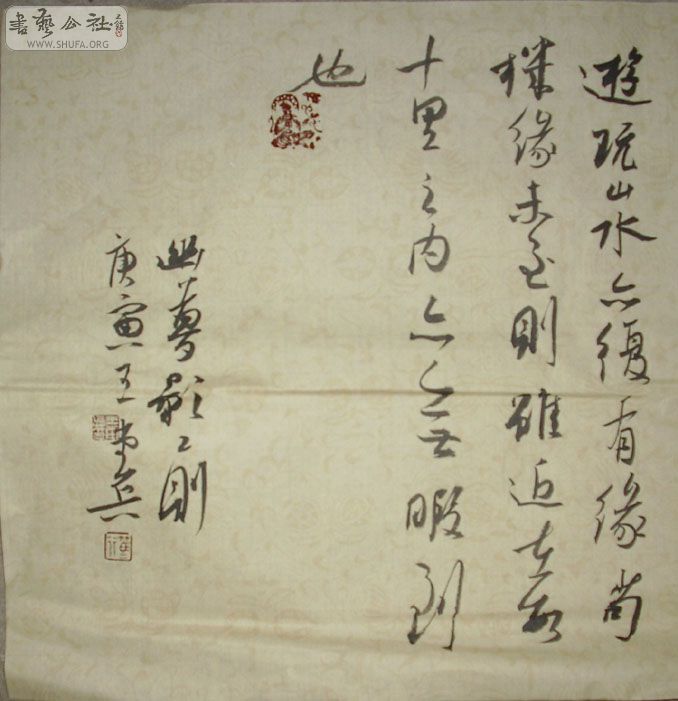 書藝公社
WWW.SHUFA.ORG
遊玩山水亦復有緣尚
機緣未至則雖近在數
十里之内亦無暇到
也
幽夢影則
庚寅王兵